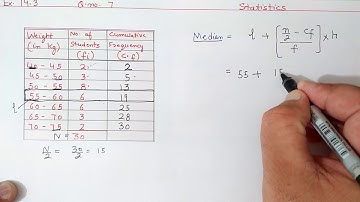 Ex. 14.3 Q.no. 7 Statistics
Weight (in Kg) No. of Students (fi) Cumulative Frequency (C.F)
40 - 45 2 2
45 - 50 3 5
50 - 55 8 13
55 - 60 6 19
60 - 65 6 25
65 - 70 3 28
70 - 75 2 30
N = 30
l
N/2 = 30/2 = 15
Median = l + [(n/2 - cf)/f] × h
= 55 + 15